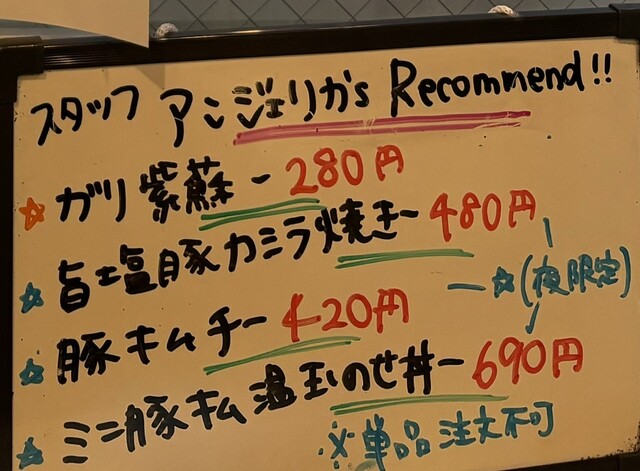 スタッフ アンジェリカs Recommend!!
☆ ガリ紫蘇ー280円
☆ 旨塩豚カミラ焼きー480円
☆ 豚キムチー420円
ー☆(夜限定)
☆ ミニ豚キム温玉のせ丼ー690円
※単品注文不可